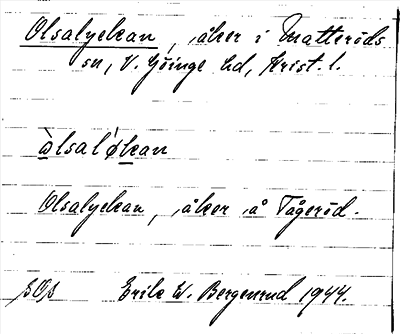 Olsalyckan, åker i Matteröds
sn, V. Göinge hd, Krist. l.
àlsaløkan
Olsalyckan, åker å Tågeröd.
Erik W. Bergenrud 1944.